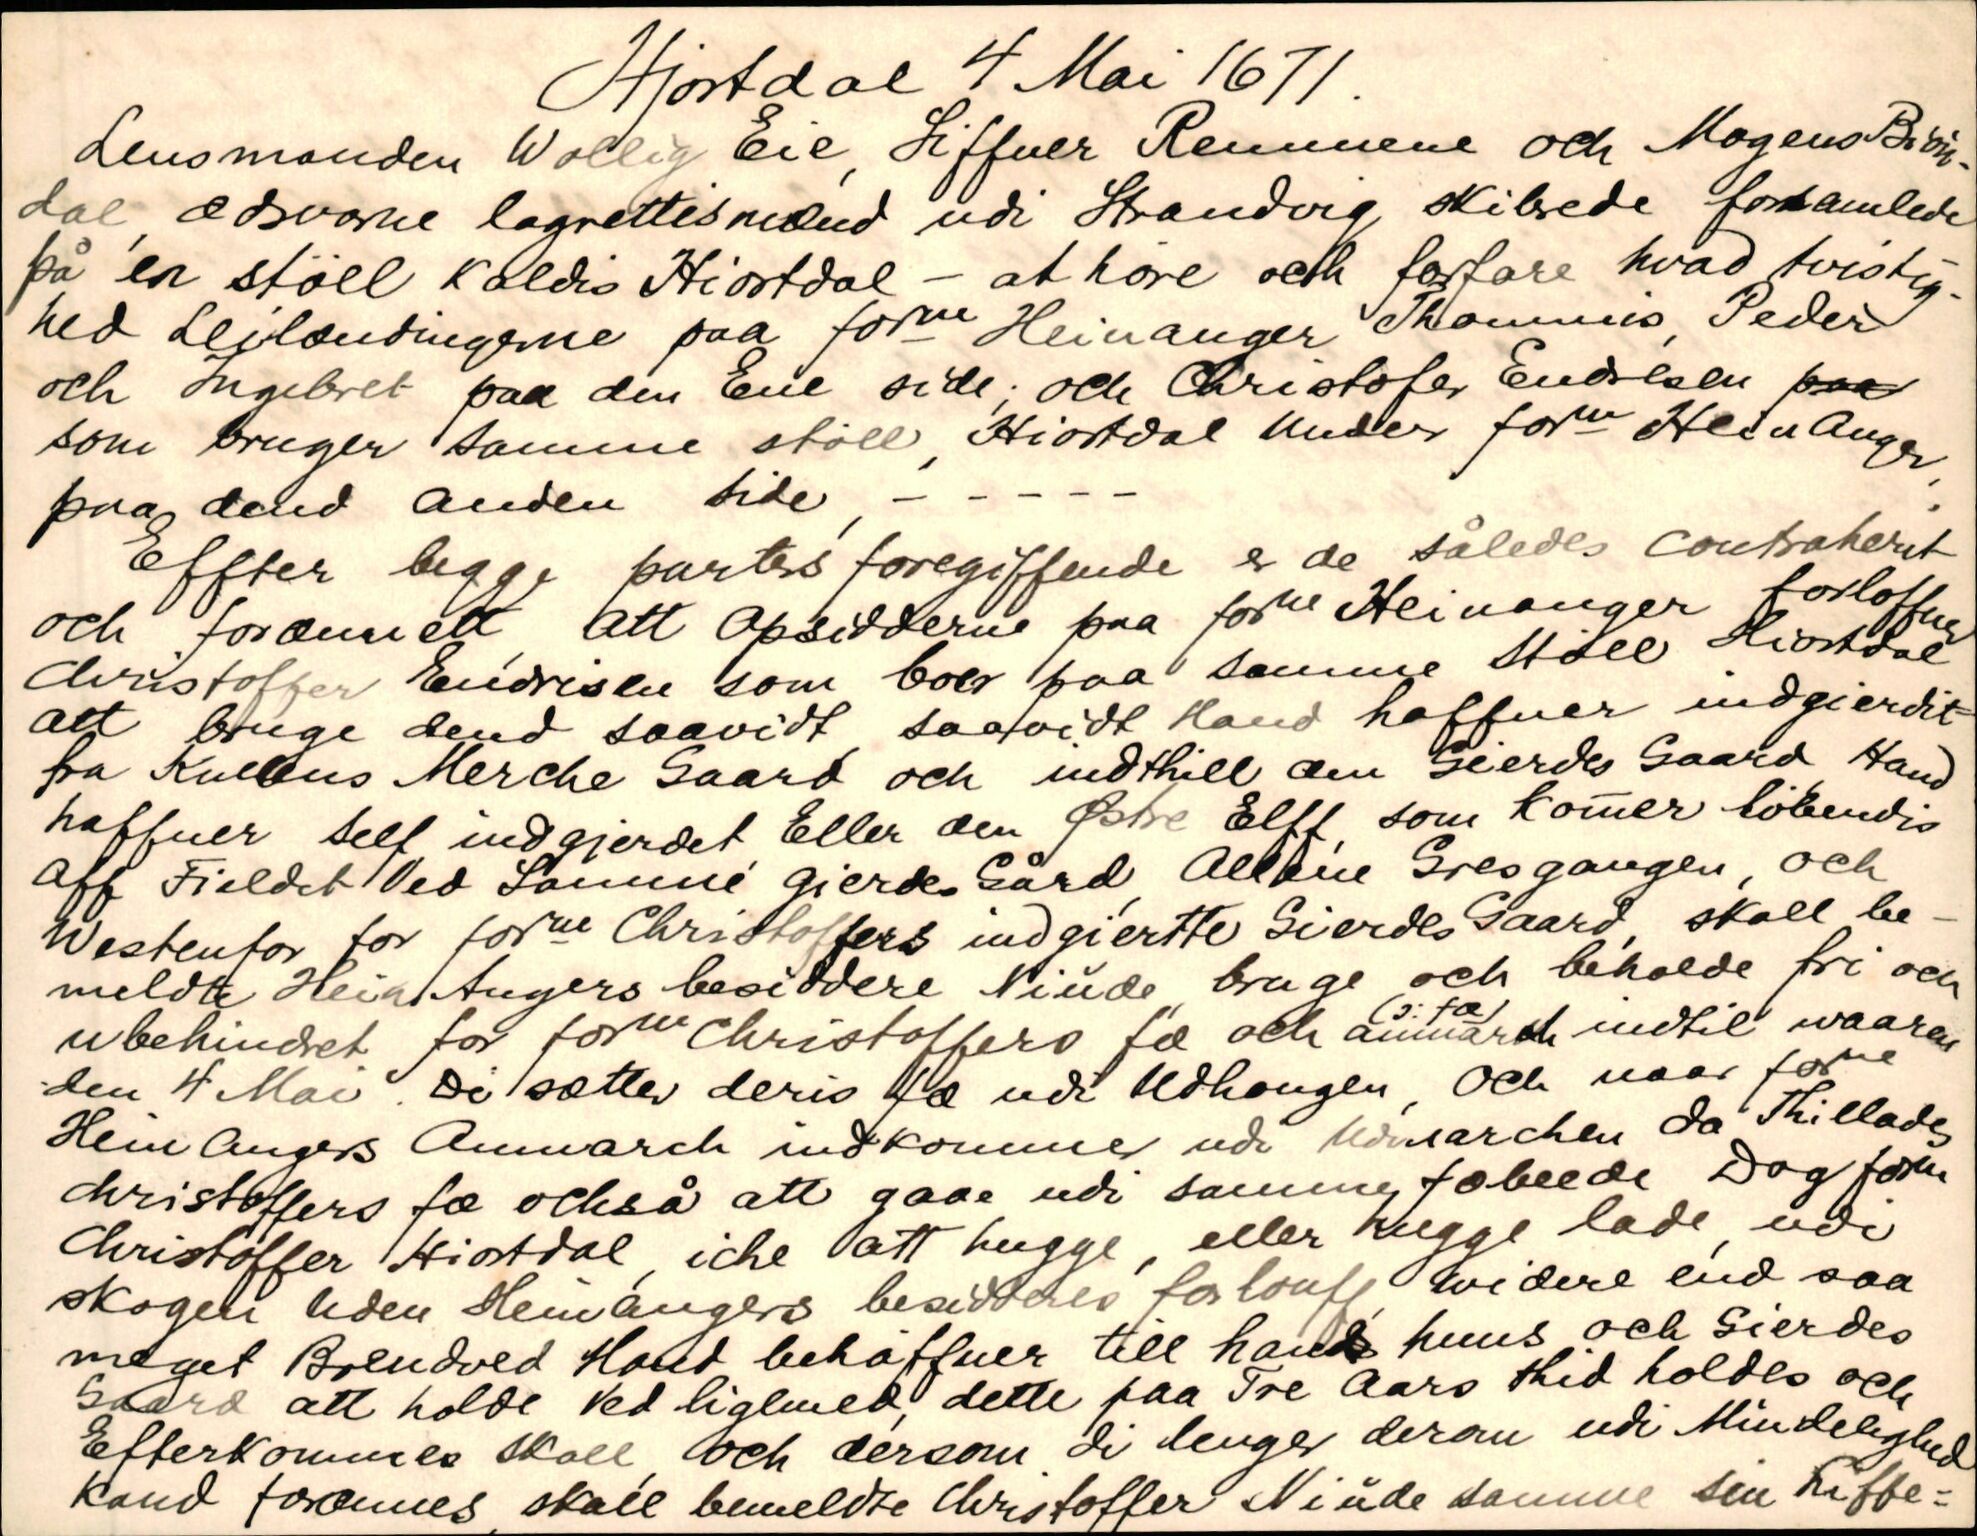 Hjortdal 4 Mai 1671.
Lensmanden Wollig Eie, Siffuer Remmene och Mogens Brön-
dal, edsvorne lagrettismænd udi Strandvig skibrede forsamlede
på en stöll kaldis Hiortdal - at höre och forfare hvad tvistig-
hed Leilændingerne paa forne Heinanger Thommis, Peder
och Ingebret paa den Ene side, och Christofer Endresen paa
som bruger samme stöll, Hiortdal under forne Hein Anger,
paa dend anden side, - - - - -
Effter begge parters foregiffende er de således contraherit
och forænnett, att opsidderne paa forne Heinanger forloffuer
Christoffer Endrisen som boer paa samme Stöll Hiortdal
att bruge dend saavidt, saavidt Hand haffuer indgierdit
fra Kuebus Merche Gaard och indthill den Gierdes Gaard Hand
haffuer self indgjerdet Eller den Østre Elff, som komer löbendis
Aff Fieldet Ved Samme gierdes Gård, Allene Gresgangen, och
Westenfor for forne Christoffers indgiertte Gierdes Gaard, skall be-
meldte Hein Angers besiddere Niüde, bruge och beholde fri och
ubehindret for forne Christoffers fæ och anmarch (ɔ: fæ) indtil waaren
den 4 Mai. Di sætter deris fæ udi Udhougen, Och naar forne
Hein Angers Anmarch indkommer udi Udmarchen da Thillades
Christoffers fæ också att gaae udi samme fæbeede Dog forne
Christoffer Hiortdal, iche att hugge, eller hugge lade, udi
skogen uden Heinangers besidderes forlouff, widere end saa
meget Brendved Hand behaffuer till hans huus och Gierdes
Gaard att holde Ved ligemed, dette paa Tre Aars thid holdes och
Efterkommes skall, och dersom di lenger derom udi Mindelighed
Kand forænnes, skall bemeldte Christoffer Niüde samme sin Liffs-